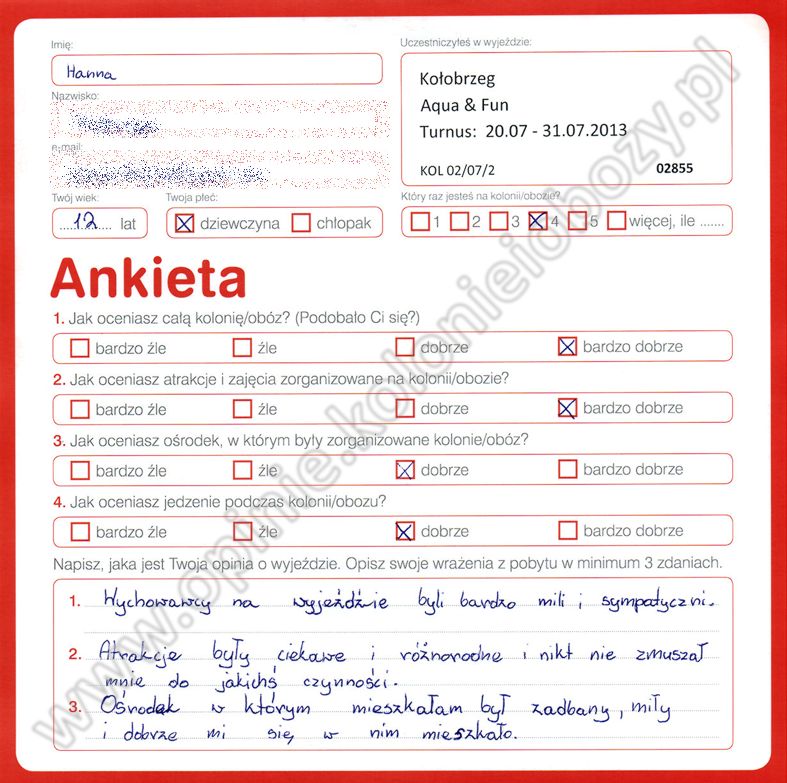 Imię:
Hanna
Nazwisko:
e-mail:
Twój wiek:
12 lat
Twoja płeć:
dziewczyna chłopak
Uczestniczyłeś w wyjeździe:
Kołobrzeg
Aqua & Fun
Turnus: 20.07 - 31.07.2013
KOL 02/07/2 02855
Który raz jesteś na kolonii/obozie?
1 2 3 4 5 więcej, ile .......
Ankieta
1. Jak oceniasz całą kolonię/obóz? (Podobało Ci się?)
bardzo źle źle dobrze bardzo dobrze
2. Jak oceniasz atrakcje i zajęcia zorganizowane na kolonii/obozie?
bardzo źle źle dobrze bardzo dobrze
3. Jak oceniasz ośrodek, w którym były zorganizowane kolonie/obóz?
bardzo źle źle dobrze bardzo dobrze
4. Jak oceniasz jedzenie podczas kolonii/obozu?
bardzo źle źle dobrze bardzo dobrze
Napisz, jaka jest Twoja opinia o wyjeździe. Opisz swoje wrażenia z pobytu w minimum 3 zdaniach.
1. Wychowawcy na wyjeździe byli bardzo mili i sympatyczni.
2. Atrakcje były ciekawe i różnorodne i nikt nie zmuszał
mnie do jakichś czynności.
3. Ośrodek w którym mieszkałam był zadbany, miły
i dobrze mi się w nim mieszkało.
www.opinie.kolonieiobozy.pl